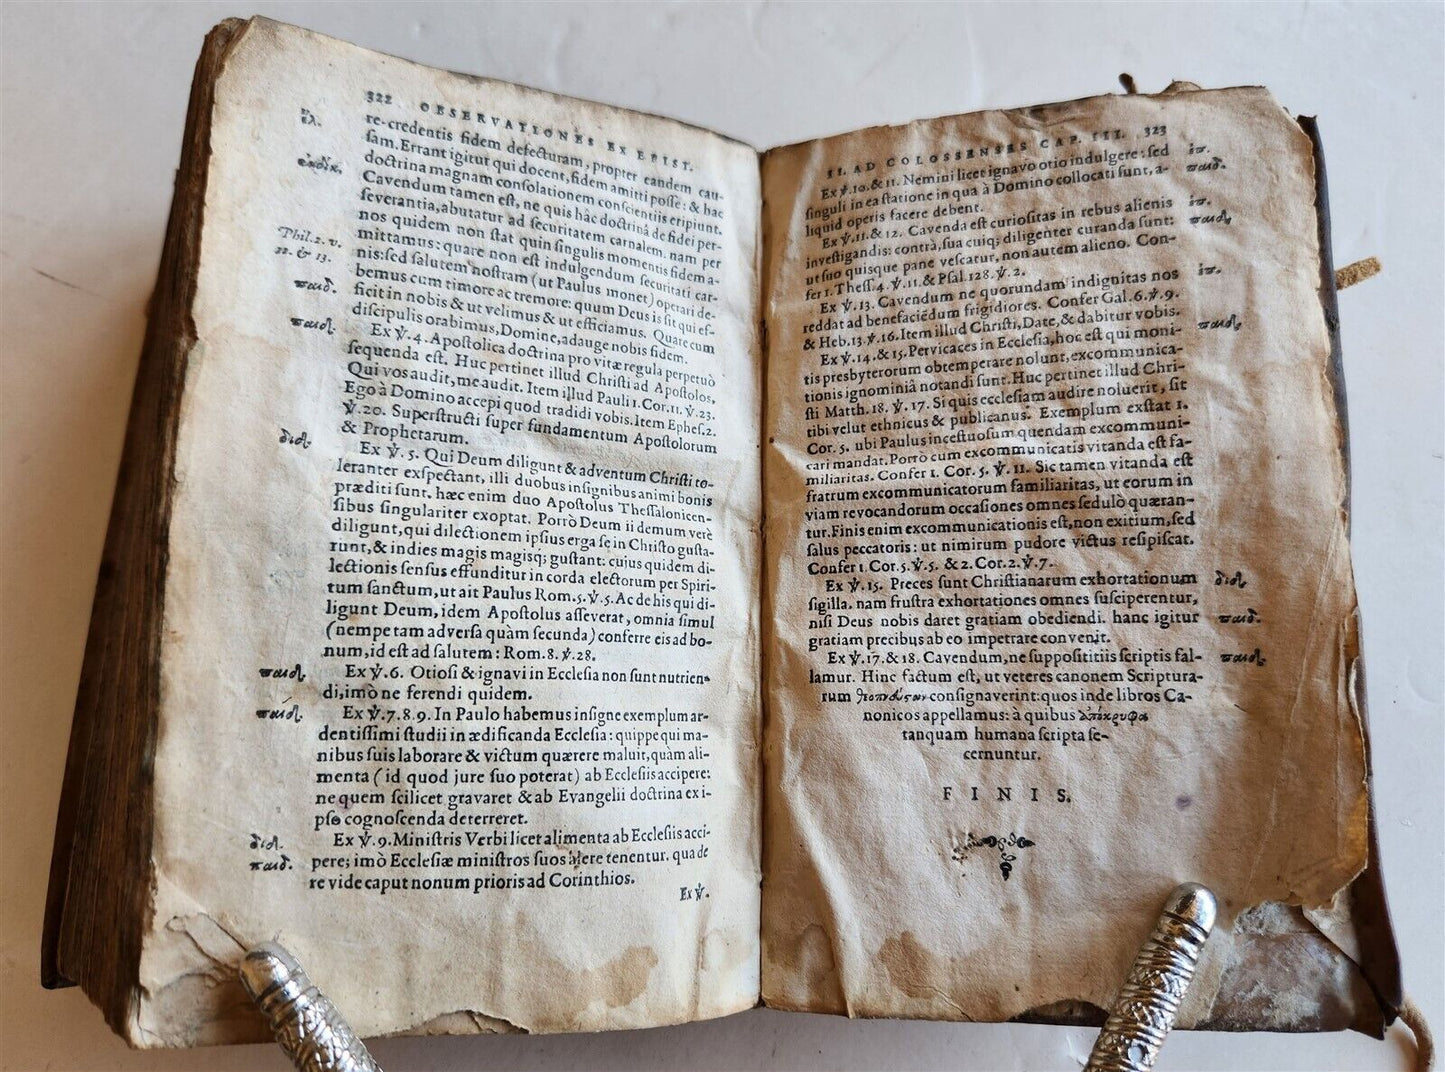 322 OBSERVATIONES EX EPIST.
re-credentis fidem defecturam, propter eandem cau-
ἔλ.
sam. Errant igitur qui docent, fidem amitti posse: & hac
doctrina magnam consolationem conscientiis eripiunt.
Cavendum tamen est, ne quis hâc doctrinâ de fidei per-
severantia, abutatur ad securitatem carnalem. nam per
nos quidem non stat quin singulis momentis fidem a-
mittamus: quare non est indulgendum securitati car-
Phil. 2. v.
12. & 13.
nis: sed salutem nostram (ut Paulus monet) operari de-
bemus cum timore ac tremore: quum Deus is sit qui ef-
παιδ.
ficit in nobis & ut velimus & ut efficiamus. Quare cum
discipulis orabimus, Domine, adauge nobis fidem.
παιδ.
Ex ℣. 4. Apostolica doctrina pro vitæ regula perpetuò
sequenda est. Huc pertinet illud Christi ad Apostolos,
Qui vos audit, me audit. Item illud Pauli 1. Cor. 11. ℣. 23.
Ego à Domino accepi quod tradidi vobis. Item Ephes. 2.
℣. 20. Superstructi super fundamentum Apostolorum
& Prophetarum.
διδ.
Ex ℣. 5. Qui Deum diligunt & adventum Christi to-
leranter exspectant, illi duobus insignibus animi bonis
præditi sunt. hæc enim duo Apostolus Thessalonicen-
sibus singulariter exoptat. Porrò Deum ii demum verè
diligunt, qui dilectionem ipsius erga se in Christo gusta-
runt, & indies magis magisq; gustant: cujus quidem di-
lectionis sensus effunditur in corda electorum per Spiri-
tum sanctum, ut ait Paulus Rom. 5. ℣. 5. Ac de his qui di-
ligunt Deum, idem Apostolus asseverat, omnia simul
(nempe tam adversa quàm secunda) conferre eis ad bo-
num, id est ad salutem: Rom. 8. ℣. 28.
παιδ.
Ex ℣. 6. Otiosi & ignavi in Ecclesia non sunt nutrien-
di, imò ne ferendi quidem.
παιδ.
Ex ℣. 7. 8. 9. In Paulo habemus insigne exemplum ar-
dentissimi studii in ædificanda Ecclesia: quippe qui ma-
nibus suis laborare & victum quærere maluit, quàm ali-
menta (id quod jure suo poterat) ab Ecclesiis accipere:
ne quem scilicet gravaret & ab Evangelii doctrina ex i-
pso cognoscenda deterreret.
διδ.
Ex ℣. 9. Ministris Verbi licet alimenta ab Ecclesiis acci-
παιδ.
pere; imò Ecclesiæ ministros suos alere tenentur. qua de
re vide caput nonum prioris ad Corinthios.
Ex ℣.
II. AD COLOSSENSES CAP. III. 323
Ex ℣. 10. & 11. Nemini licet ignavo otio indulgere: sed
singuli in ea statione in qua à Domino collocati sunt, a-
παιδ.
liquid operis facere debent.
Ex ℣. 11. & 12. Cavenda est curiositas in rebus alienis
investigandis: contrà, sua cuiq; diligenter curanda sunt:
παιδ.
ut suo quisque pane vescatur, non autem alieno. Con-
fer 1. Thess. 4. ℣. 11. & Psal. 128. ℣. 2.
Ex ℣. 13. Cavendum ne quorundam indignitas nos
reddat ad benefaciēdum frigidiores. Confer Gal. 6. ℣. 9.
& Heb. 13. ℣. 16. Item illud Christi, Date, & dabitur vobis.
παιδ.
Ex ℣. 14. & 15. Pervicaces in Ecclesia, hoc est qui moni-
tis presbyterorum obtemperare nolunt, excommunica-
tionis ignominiâ notandi sunt. Huc pertinet illud Chri-
sti Matth. 18. ℣. 17. Si quis ecclesiam audire noluerit, sit
tibi velut ethnicus & publicanus. Exemplum exstat 1.
Cor. 5. ubi Paulus incestuosum quendam excommuni-
cari mandat. Porrò cum excommunicatis vitanda est fa-
miliaritas. Confer 1. Cor. 5. ℣. 11. Sic tamen vitanda est
fratrum excommunicatorum familiaritas, ut eorum in
viam revocandorum occasiones omnes sedulò quæran-
tur. Finis enim excommunicationis est, non exitium, sed
salus peccatoris: ut nimirum pudore victus resipiscat.
Confer 1. Cor. 5. ℣. 5. & 2. Cor. 2. ℣. 7.
Ex ℣. 15. Preces sunt Christianarum exhortationum
διδ.
sigilla. nam frustra exhortationes omnes susciperentur,
nisi Deus nobis daret gratiam obediendi. hanc igitur
παιδ.
gratiam precibus ab eo impetrare convenit.
Ex ℣. 17. & 18. Cavendum, ne supposititiis scriptis fal-
παιδ.
lamur. Hinc factum est, ut veteres canonem Scriptura-
rum θεοπνεύστων consignaverint: quos inde libros Ca-
nonicos appellamus: à quibus ἀπόκρυφα
tanquam humana scripta se-
cernuntur.
FINIS.